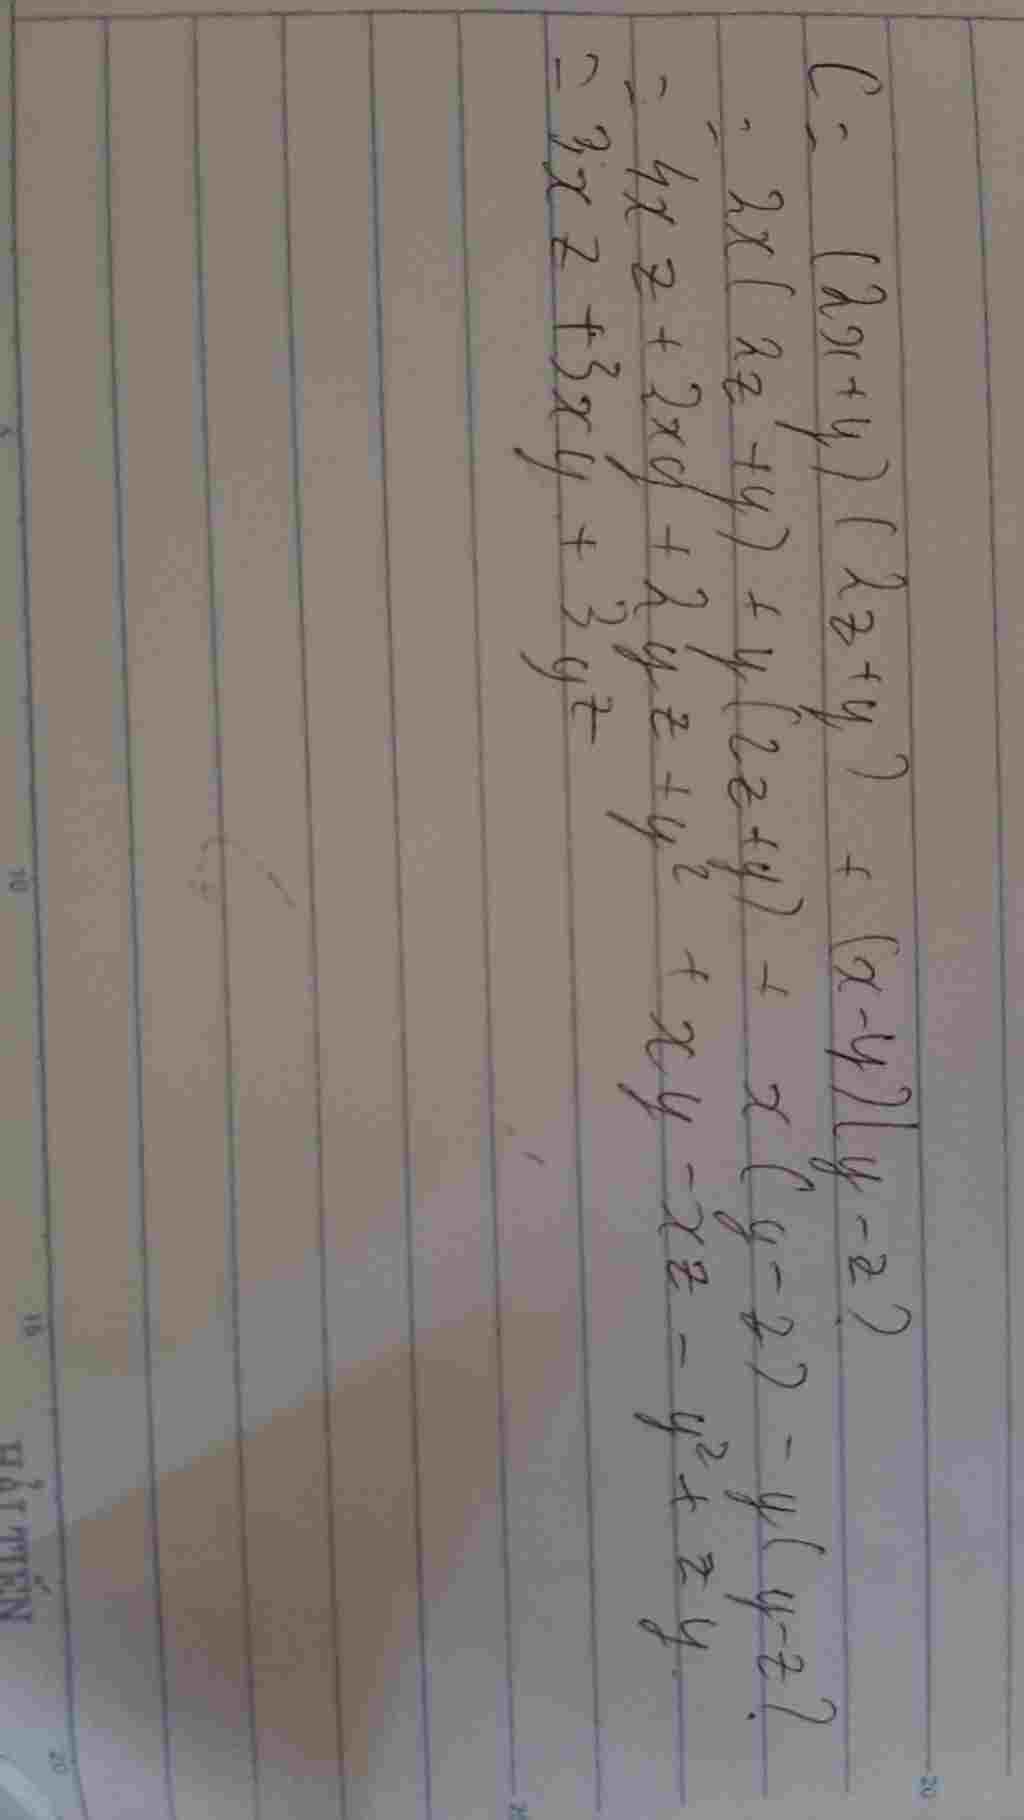 C = (2x+y)(2z+y) + (x-y)(y-z)
= 2x(2z+y) + y(2z+y) + x(y-z) - y(y-z).
= 4xz + 2xy + 2yz + y² + xy - xz - y² + zy.
= 3xz + 3xy + 3yz
5
10
15
20
HẢI TIẾN
20